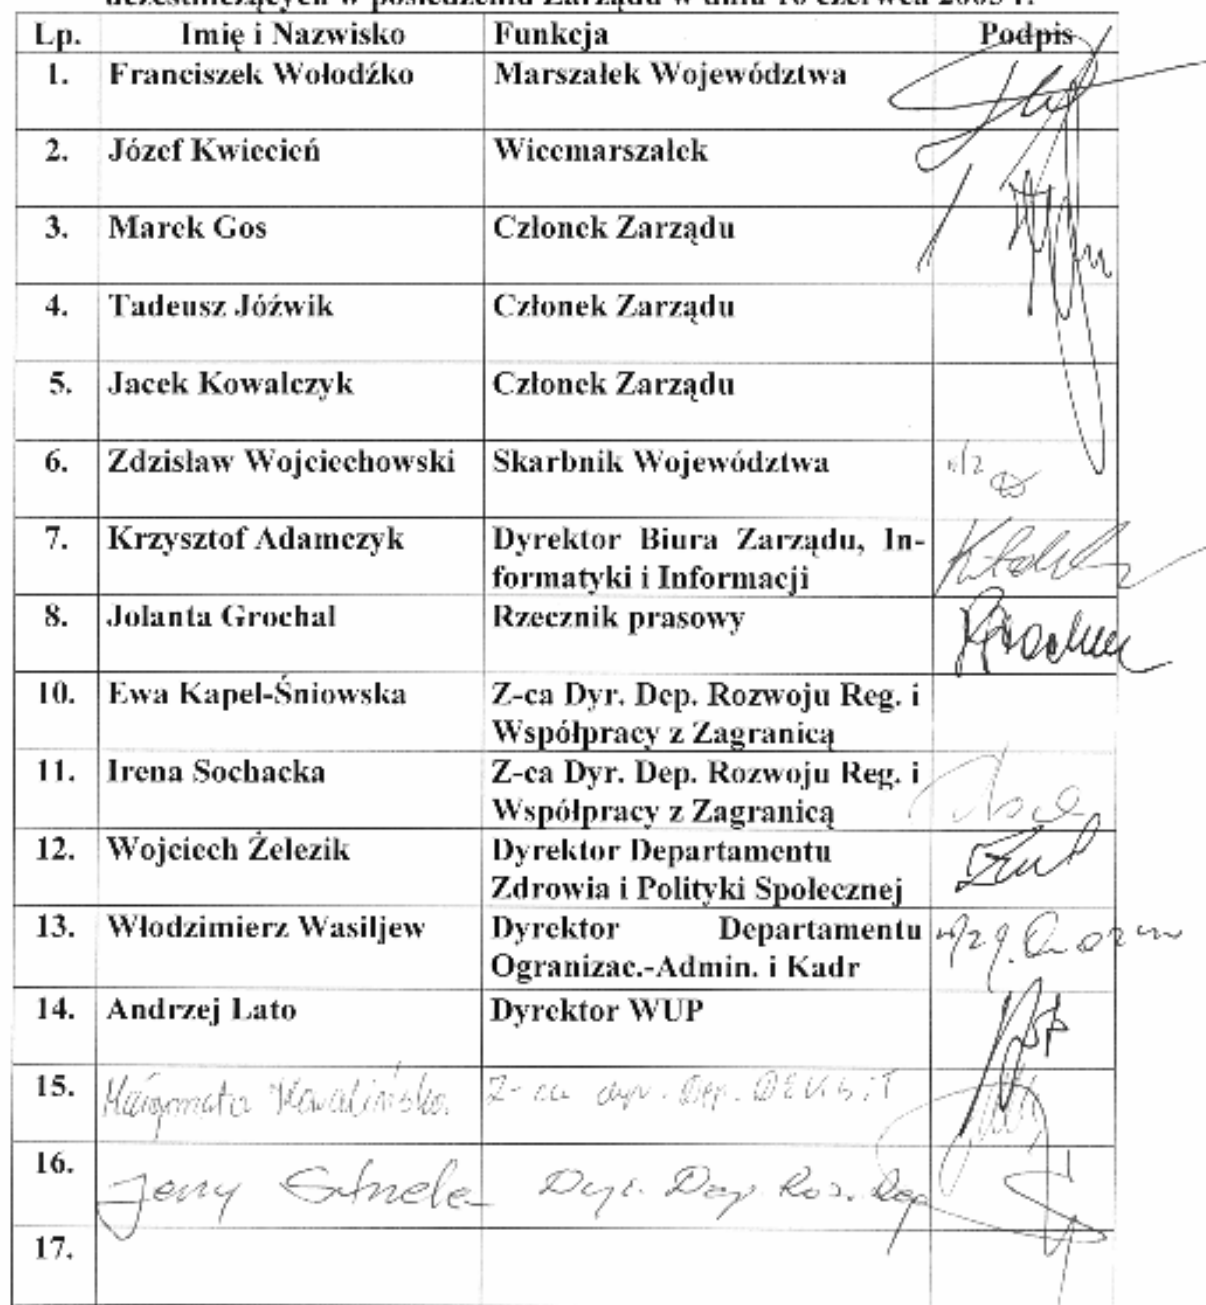 uczestniczących w posiedzeniu Zarządu w dniu 16 czerwca 2003 r.
Lp. Imię i Nazwisko Funkcja Podpis
1. Franciszek Wołodźko Marszałek Województwa
2. Józef Kwiecień Wicemarszałek
3. Marek Gos Członek Zarządu
4. Tadeusz Jóźwik Członek Zarządu
5. Jacek Kowalczyk Członek Zarządu
6. Zdzisław Wojciechowski Skarbnik Województwa
7. Krzysztof Adamczyk Dyrektor Biura Zarządu, In-
formatyki i Informacji
8. Jolanta Grochal Rzecznik prasowy
10. Ewa Kapel-Śniowska Z-ca Dyr. Dep. Rozwoju Reg. i
Współpracy z Zagranicą
11. Irena Sochacka Z-ca Dyr. Dep. Rozwoju Reg. i
Współpracy z Zagranicą
12. Wojciech Żelezik Dyrektor Departamentu
Zdrowia i Polityki Społecznej
13. Włodzimierz Wasiljew Dyrektor Departamentu
Ogranizac.-Admin. i Kadr
14. Andrzej Lato Dyrektor WUP
15. Małgorzata Z-ca dyr. Dep.
16. Jerzy Dyr. Dep. Roz.
17.